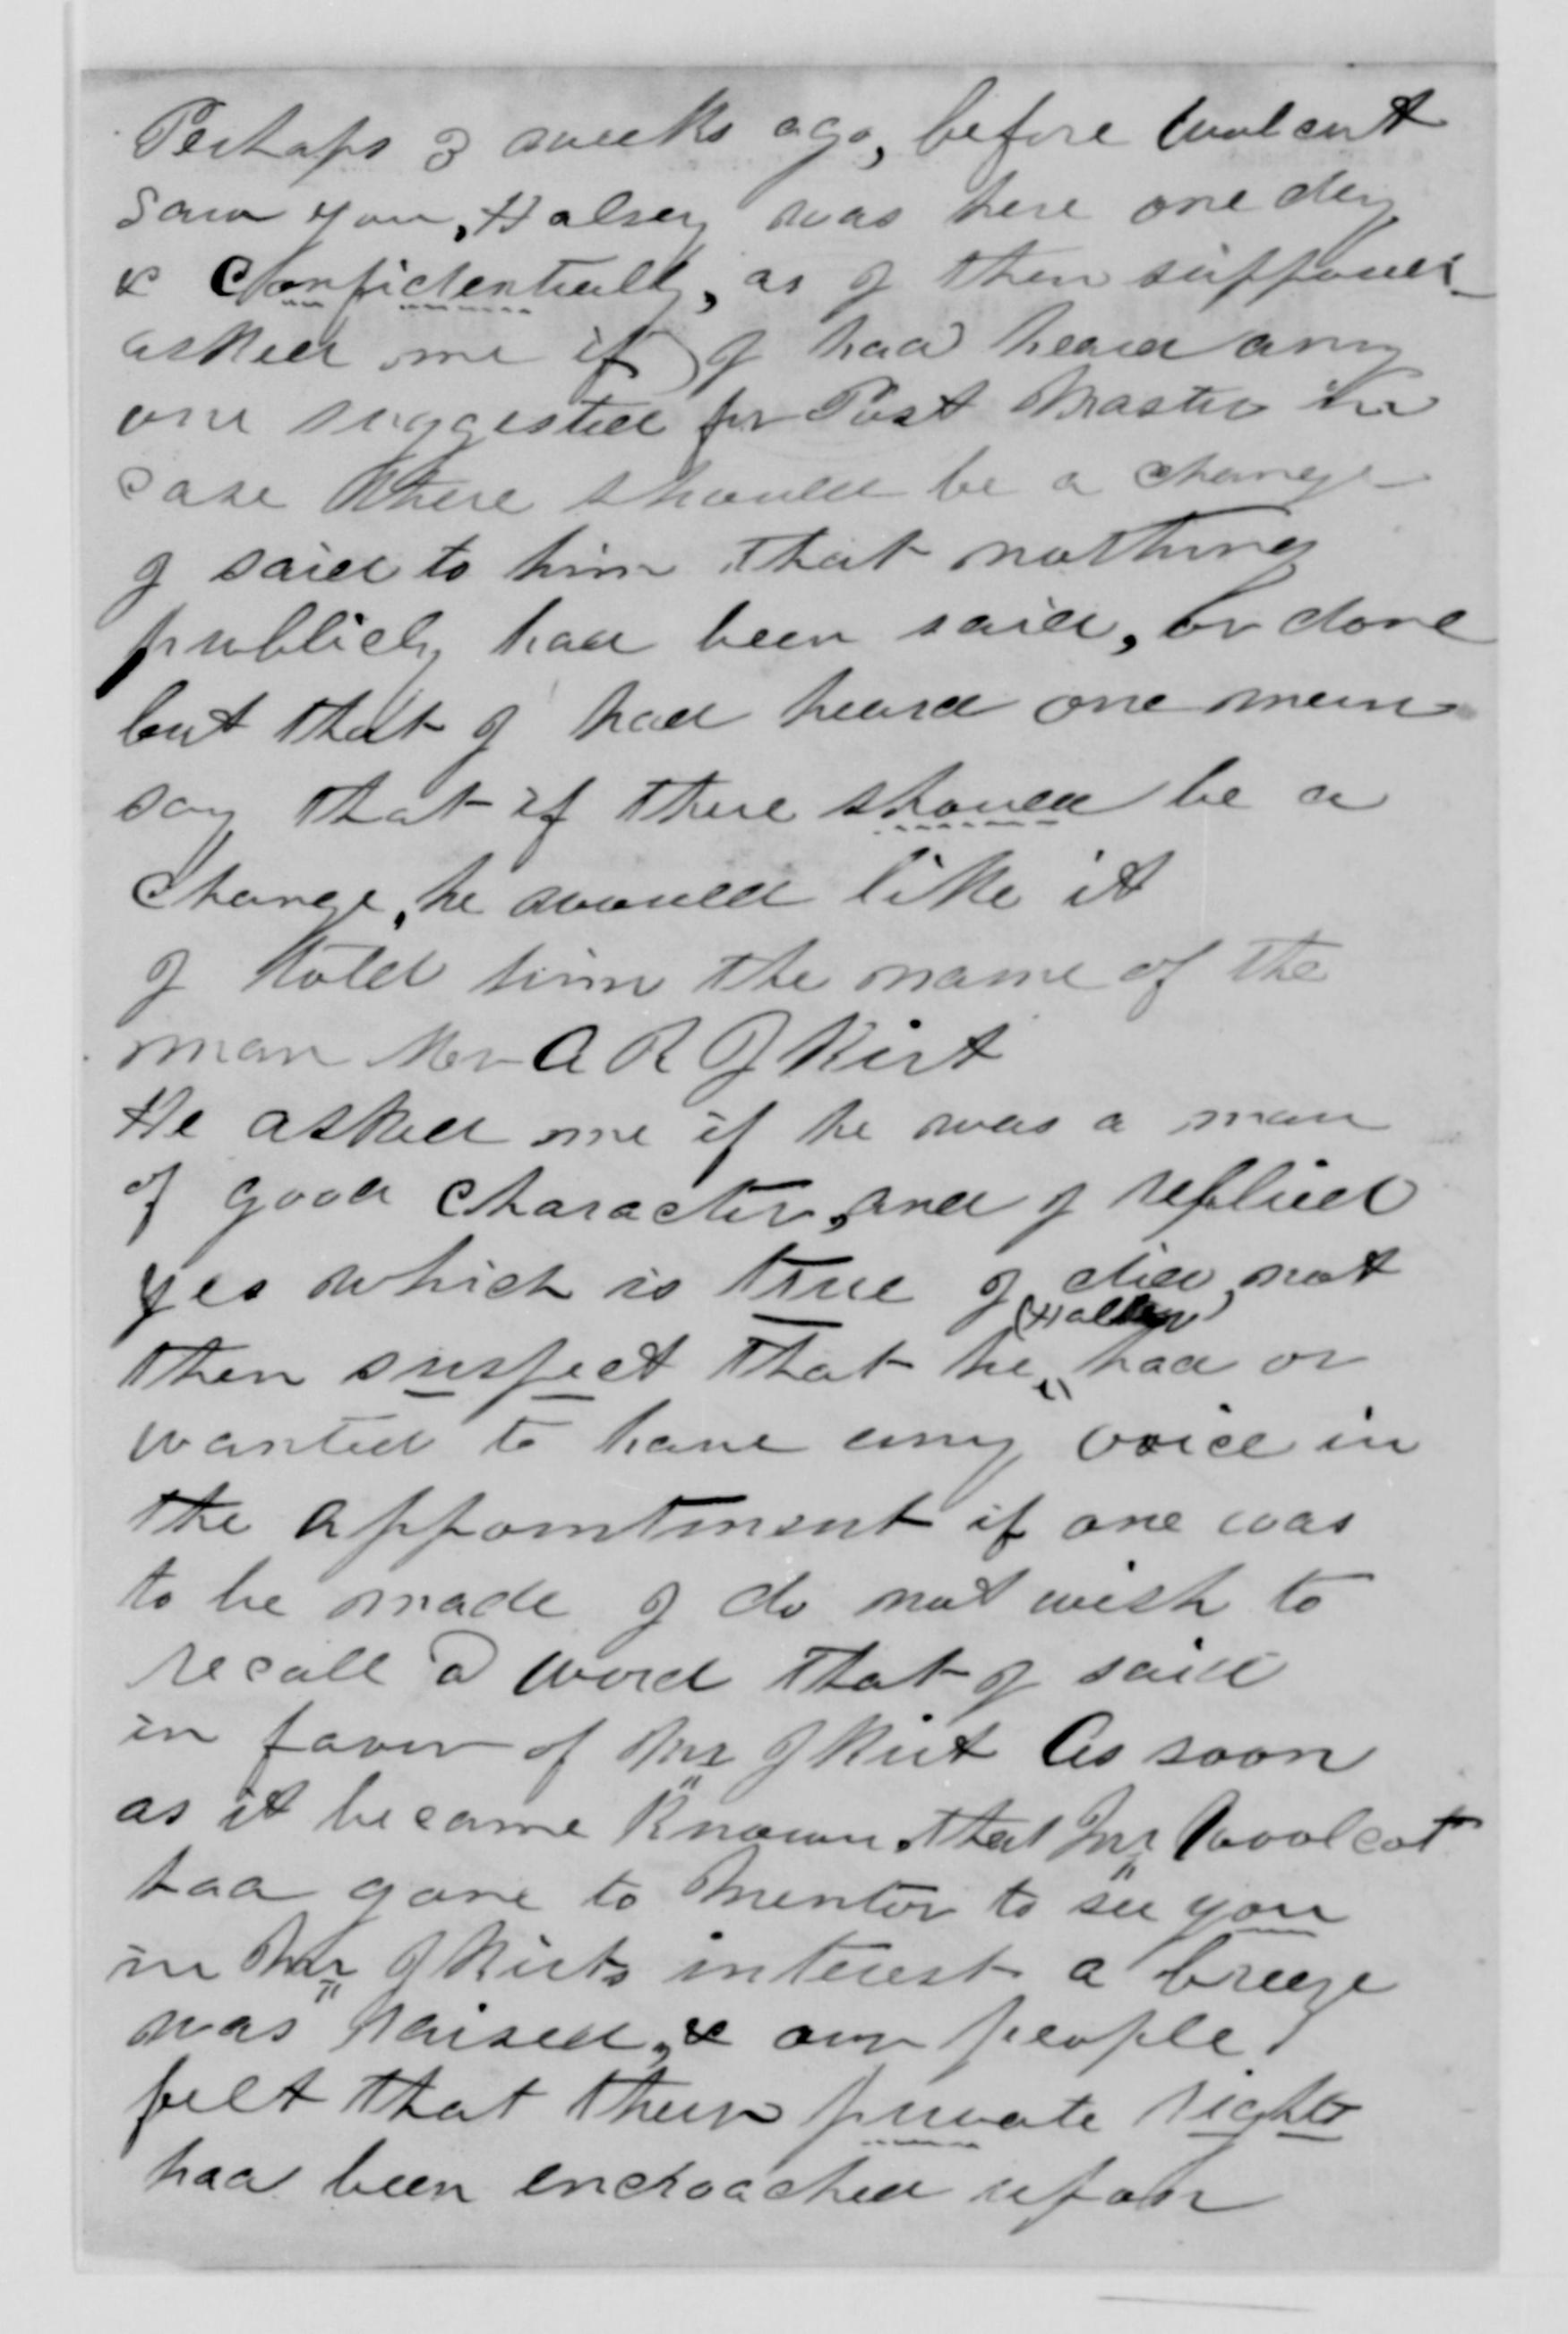 Perhaps 3 weeks ago, before Woolcut
saw you, Halsey was here one day
& Confidentially, as I then supposed
asked me if I had heard any
one suggested for Post Master in
case there should be a change
I said to him that nothing
publicly had been said, or done
but that I had heard one man
say that if there should be a
change, he would like it
I told him the name of the
man Mr A R I Kirt
He asked me if he was a man
of good character, and I replied
yes which is true I did not
(Halsey)
then suspect that he had or
wanted to have any voice in
the appointment if one was
to be made I do not wish to
recall a word that I said
in favor of Mr As soon
as it became known that Mr Woolcot
had gone to Mentor to see you
in Mr interest a breeze
was raised, & our people
felt that their private rights
had been encroached upon